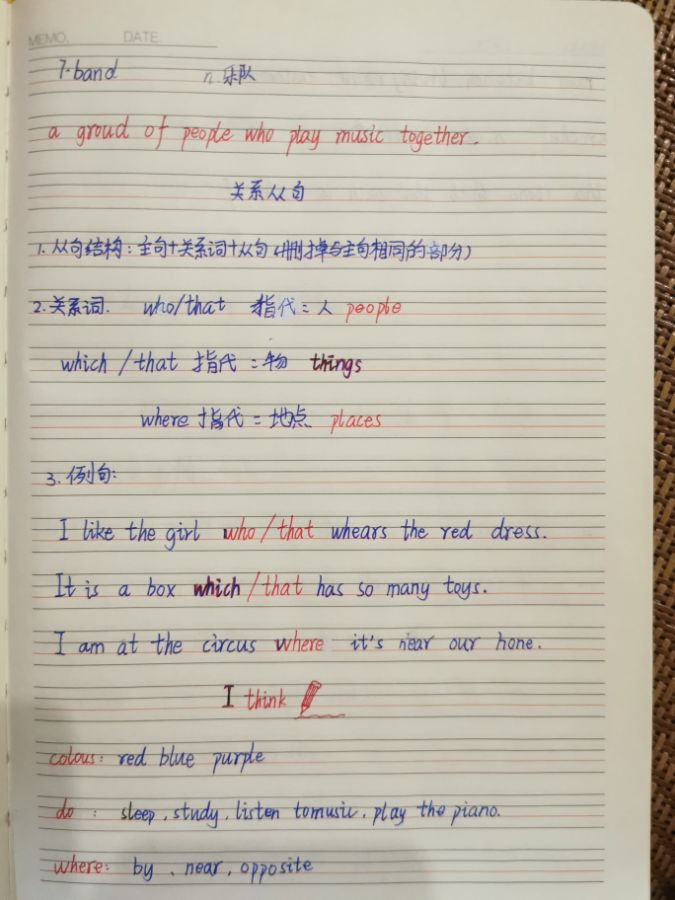 MEMO. DATE
7. band n. 乐队
a groud of people who play music together.
关系从句
1. 从句结构：主句+关系词+从句（删掉与主句相同的部分）
2. 关系词. who/that 指代：人 people
which / that 指代：物 things
where 指代：地点 places
3. 例句：
I like the girl who/that whears the red dress.
It is a box which/that has so many toys.
I am at the circus where it's near our hone.
I think
colous: red blue purple
do : sleep, study, listen tomusic, play the piano.
where: by, near, opposite